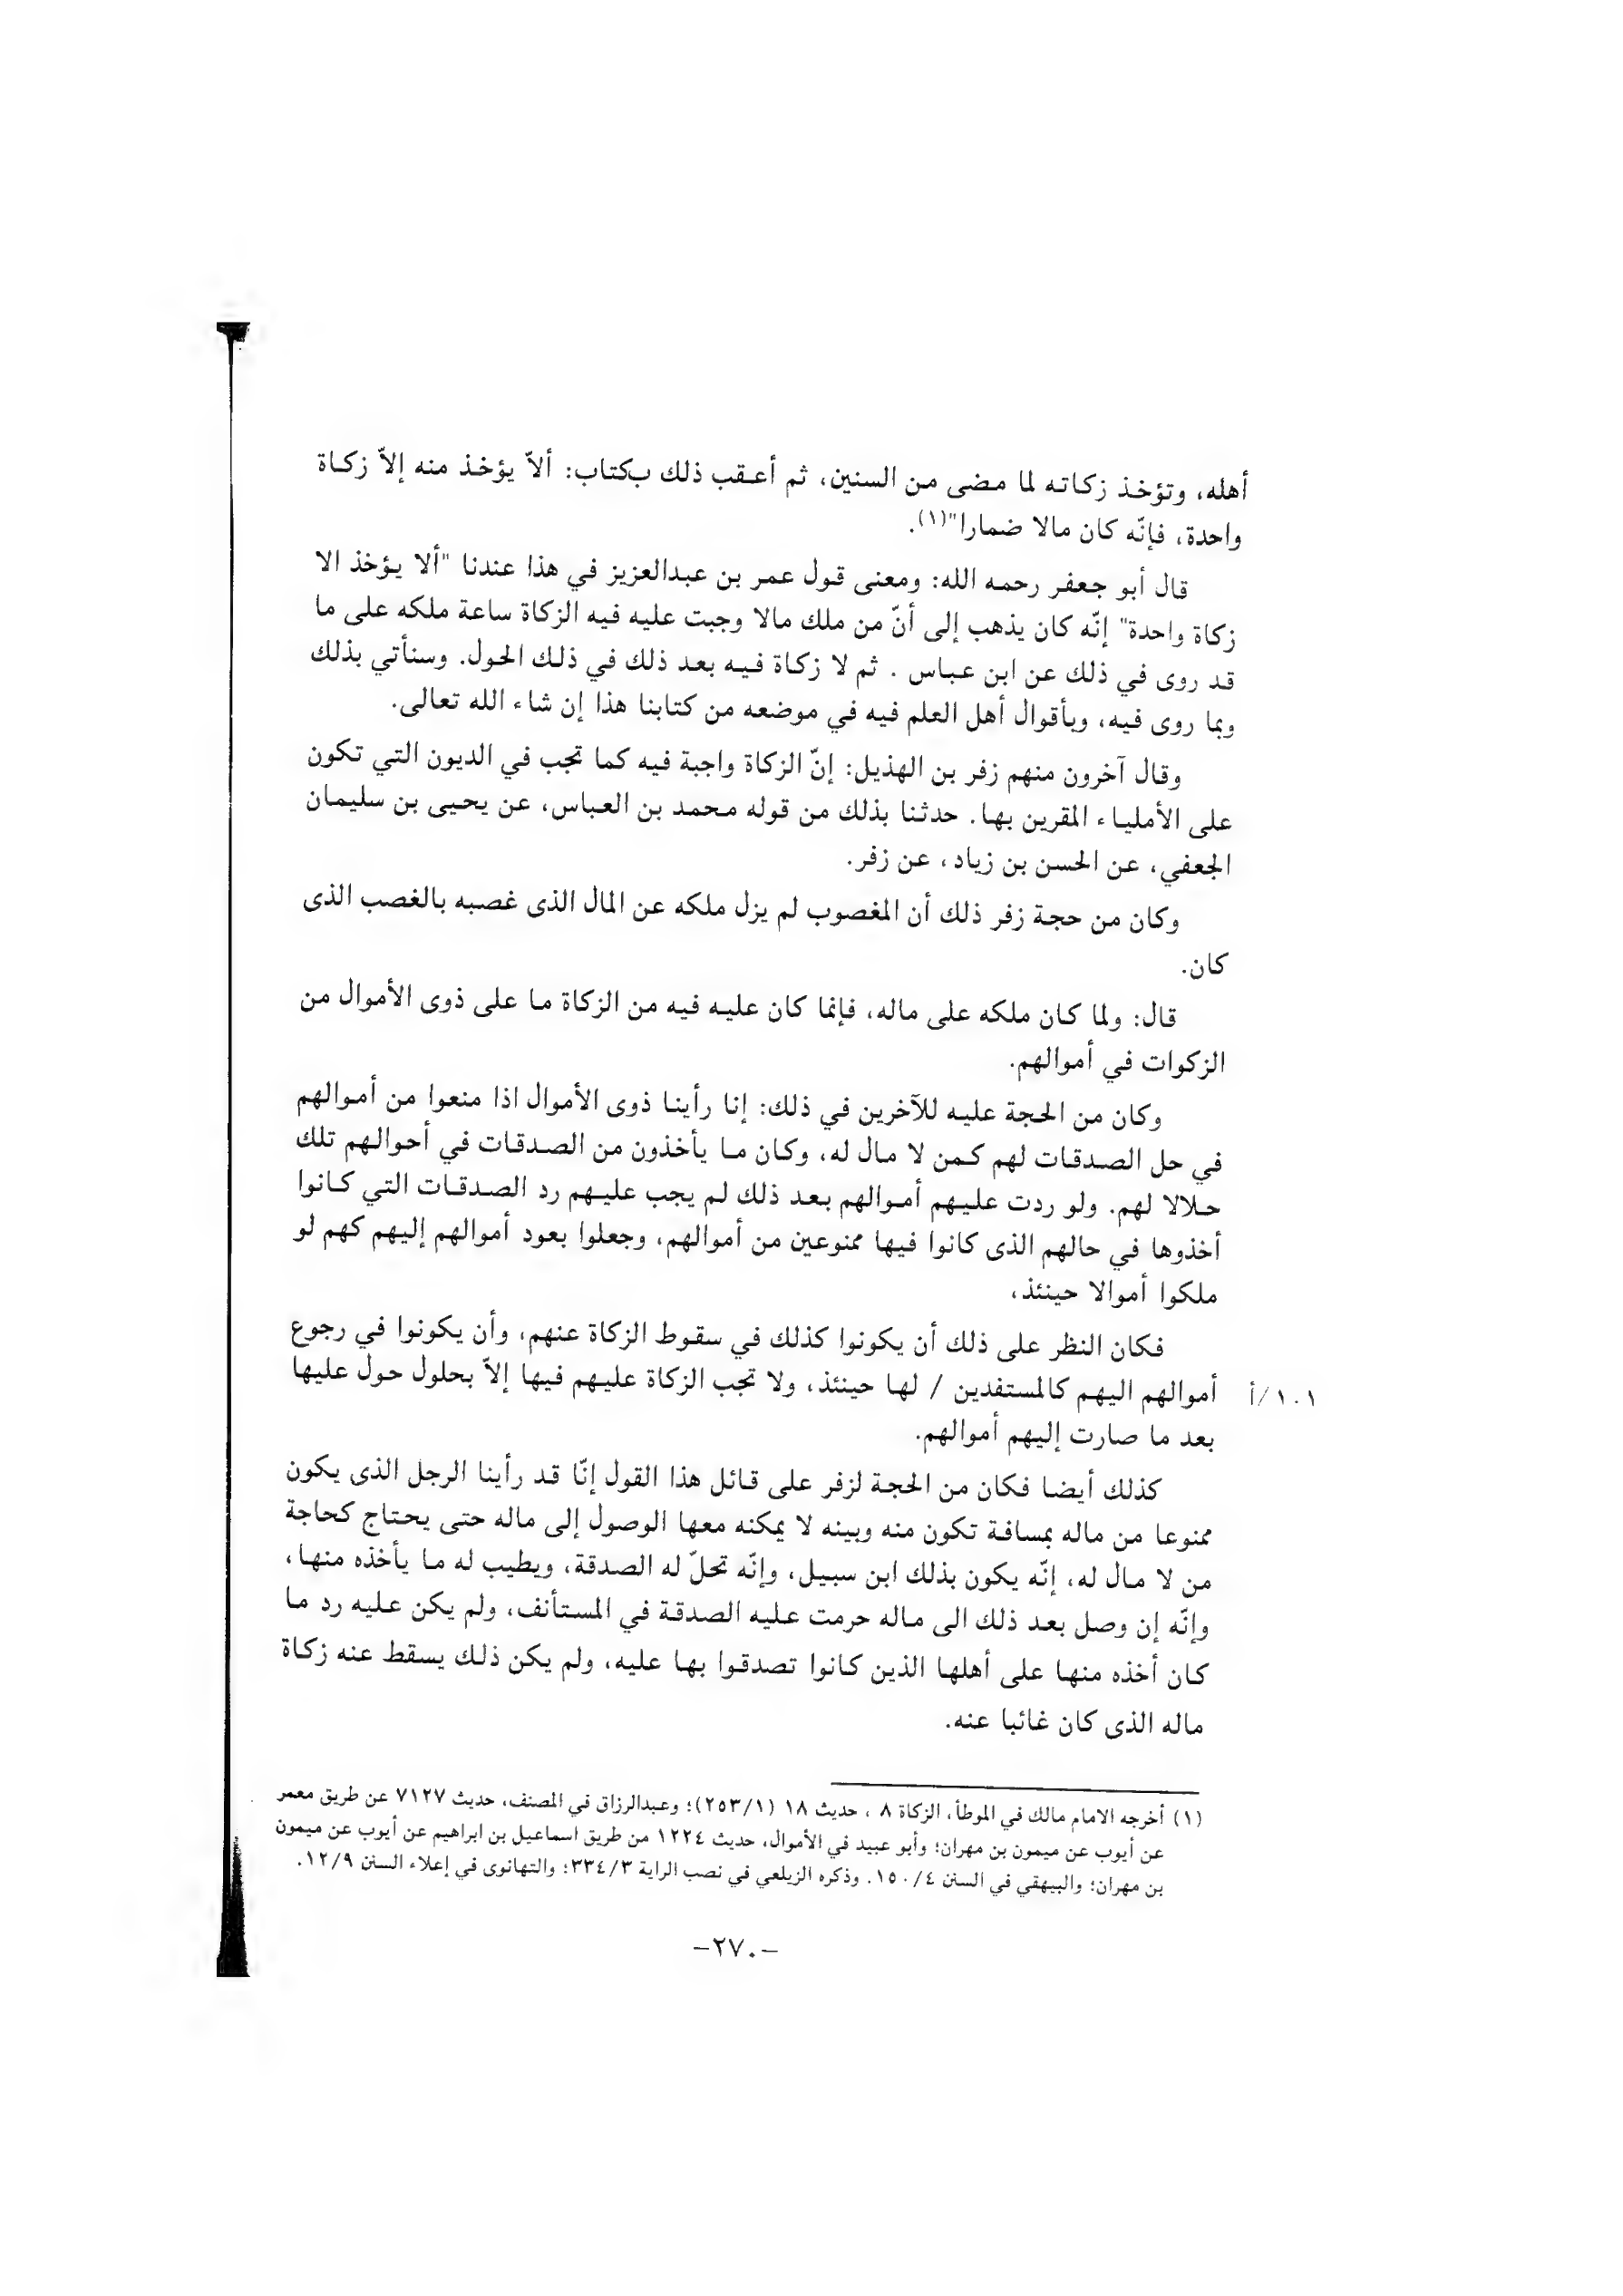 أهله، وتؤخذ زكاته لما مضى من السنين، ثم أعقب ذلك بكتاب: ألاّ يؤخذ منه إلاّ زكاة
واحدة، فإنّه كان مالا ضمارا"(١).
قال أبو جعفر رحمه الله: ومعنى قول عمر بن عبدالعزيز في هذا عندنا "ألا يؤخذ الا
زكاة واحدة" إنّه كان يذهب إلى أنّ من ملك مالا وجبت عليه فيه الزكاة ساعة ملكه على ما
قد روى في ذلك عن ابن عباس . ثم لا زكاة فيه بعد ذلك في ذلك الحول. وسنأتي بذلك
وبما روى فيه، وبأقوال أهل العلم فيه في موضعه من كتابنا هذا إن شاء الله تعالى.
وقال آخرون منهم زفر بن الهذيل: إنّ الزكاة واجبة فيه كما تجب في الديون التي تكون
على الأملياء المقرين بها. حدثنا بذلك من قوله محمد بن العباس، عن يحيى بن سليمان
الجعفي، عن الحسن بن زياد، عن زفر.
وكان من حجة زفر ذلك أن المغصوب لم يزل ملكه عن المال الذى غصبه بالغصب الذى
كان.
قال: ولما كان ملكه على ماله، فإنما كان عليه فيه من الزكاة ما على ذوى الأموال من
الزكوات في أموالهم.
وكان من الحجة عليه للآخرين في ذلك: إنا رأينا ذوى الأموال اذا منعوا من أموالهم
في حل الصدقات لهم كمن لا مال له، وكان ما يأخذون من الصدقات في أحوالهم تلك
حلالا لهم. ولو ردت عليهم أموالهم بعد ذلك لم يجب عليهم رد الصدقات التي كانوا
أخذوها في حالهم الذى كانوا فيها ممنوعين من أموالهم، وجعلوا بعود أموالهم إليهم كهم لو
ملكوا أموالا حينئذ،
فكان النظر على ذلك أن يكونوا كذلك في سقوط الزكاة عنهم، وأن يكونوا في رجوع
١٠١/أ أموالهم اليهم كالمستفدين / لها حينئذ، ولا تجب الزكاة عليهم فيها إلاّ بحلول حول عليها
بعد ما صارت إليهم أموالهم.
كذلك أيضا فكان من الحجة لزفر على قائل هذا القول إنّا قد رأينا الرجل الذى يكون
ممنوعا من ماله بمسافة تكون منه وبينه لا يمكنه معها الوصول إلى ماله حتى يحتاج كحاجة
من لا مال له، إنّه يكون بذلك ابن سبيل، وإنّه تحلّ له الصدقة، ويطيب له ما يأخذه منها،
وإنّه إن وصل بعد ذلك الى ماله حرمت عليه الصدقة في المستأنف، ولم يكن عليه رد ما
كان أخذه منها على أهلها الذين كانوا تصدقوا بها عليه، ولم يكن ذلك يسقط عنه زكاة
ماله الذى كان غائبا عنه.
(١) أخرجه الامام مالك في الموطأ، الزكاة ٨ ، حديث ١٨ (٢٥٣/١)؛ وعبدالرزاق في المصنف، حديث ٧١٢٧ عن طريق معمر
عن أيوب عن ميمون بن مهران؛ وأبو عبيد في الأموال، حديث ١٢٢٤ من طريق اسماعيل بن ابراهيم عن أيوب عن ميمون
بن مهران؛ والبيهقي في السنن ١٥٠/٤. وذكره الزيلعي في نصب الراية ٣٣٤/٣؛ والتهانوى في إعلاء السنن ١٢/٩.
-٢٧٠-